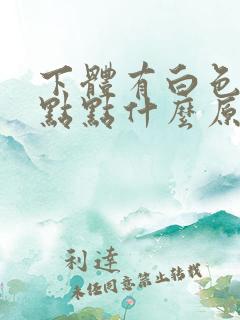 下體有白色
點點什麼原
利達
未经同意禁止转载